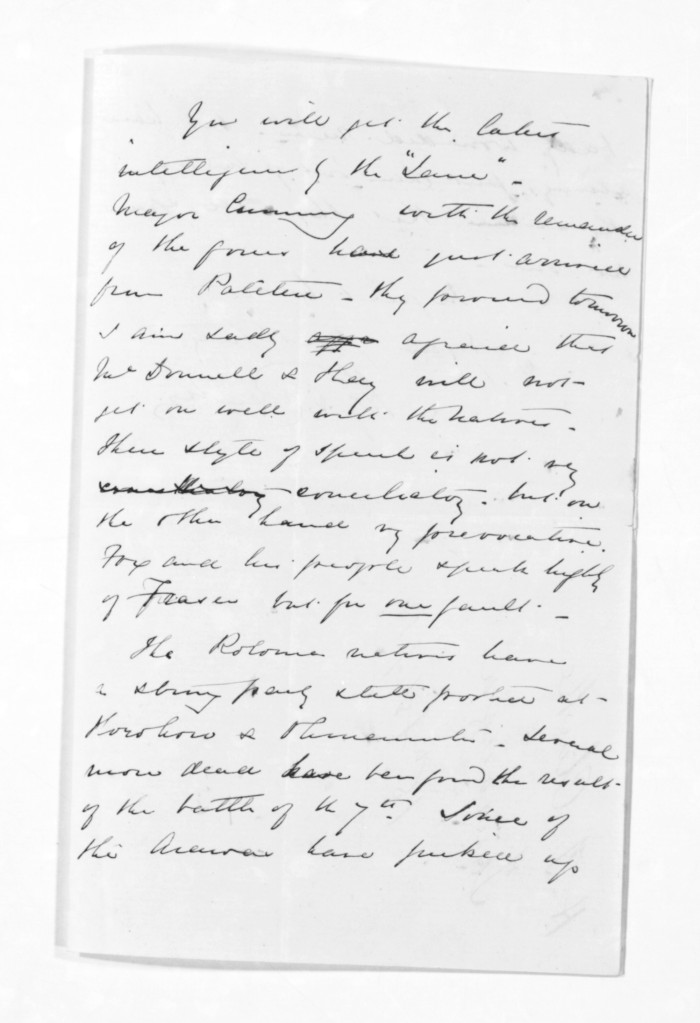 You will get the latest
intelligence by the "
Major with the remainder
of the force have just arrived
from – they proceed tomorrow
I am sadly afraid that
McDonnell & they will not
get on well with the natives.
Their style of speech is not very
conciliatory conciliatory. but on
the other hand vy provocative.
Fox and his people speak highly
of Fraser but for one fault. –
The Rotorua natives have
a strong party still posted at
Horohoro & – several
more dead have been found the result
of the battle of the 7th. Some of
the Arawa have picked up